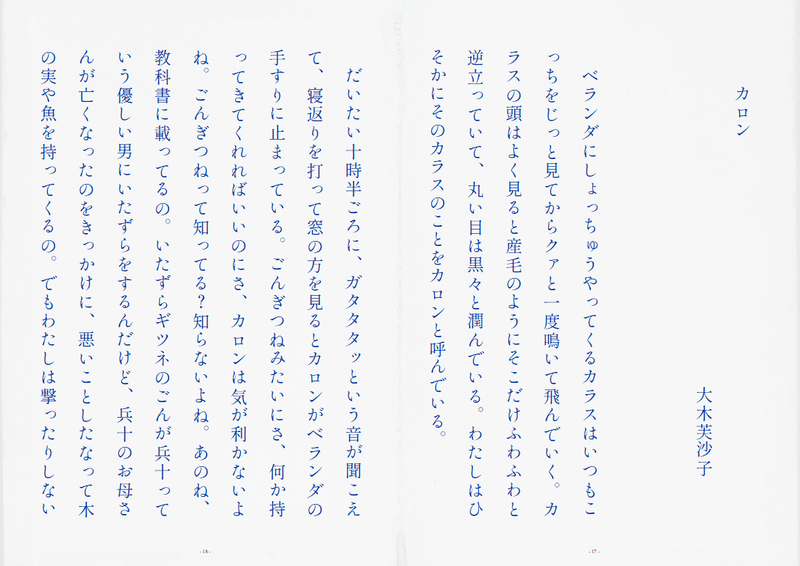 カロン
大木芙沙子
ベランダにしょっちゅうやってくるカラスはいつもこ
っちをじっと見てからクァと一度鳴いて飛んでいく。カ
ラスの頭はよく見ると産毛のようにそこだけふわふわと
逆立っていて、丸い目は黒々と潤んでいる。わたしはひ
そかにそのカラスのことをカロンと呼んでいる。
- 17 -
だいたい十時半ごろに、ガタタタッという音が聞こえ
て、寝返りを打って窓の方を見るとカロンがベランダの
手すりに止まっている。ごんぎつねみたいにさ、何か持
ってきてくれればいいのにさ、カロンは気が利かないよ
ね。ごんぎつねって知ってる？知らないよね。あのね、
教科書に載ってるの。いたずらギツネのごんが兵十って
いう優しい男にいたずらをするんだけど、兵十のお母さ
んが亡くなったのをきっかけに、悪いことしたなって木
の実や魚を持ってくるの。でもわたしは撃ったりしない
- 18 -